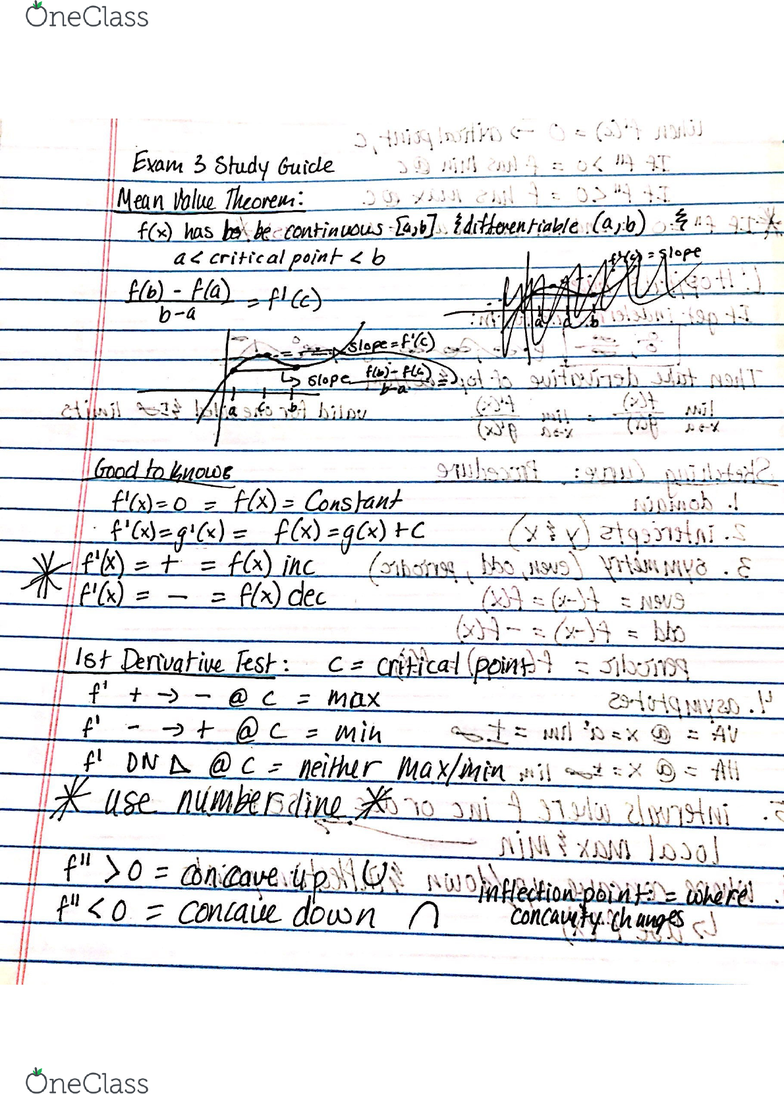 OneClass
Exam 3 Study Guide
Mean Value Theorem:
f(x) has to be continuous [a,b] & differentiable (a,b) &
a < critical point < b
f(b) - f(a) / b-a = f'(c)
f'(c) = slope
a c b
slope = f'(c)
↳ slope f(b)-f(a) / b-a
a c b
Good to Knows
f'(x) = 0 = f(x) = Constant
f'(x) = g'(x) = f(x) = g(x) + C
* f'(x) = + = f(x) inc
f'(x) = - = f(x) dec
1st Derivative Test: C = critical point
f' + → - @ C = max
f' - → + @ C = min
f' DN Δ @ C = neither max/min
* use number line *
f" > 0 = concave up ∪
f" < 0 = concave down ∩
inflection point = where
concavity changes
OneClass